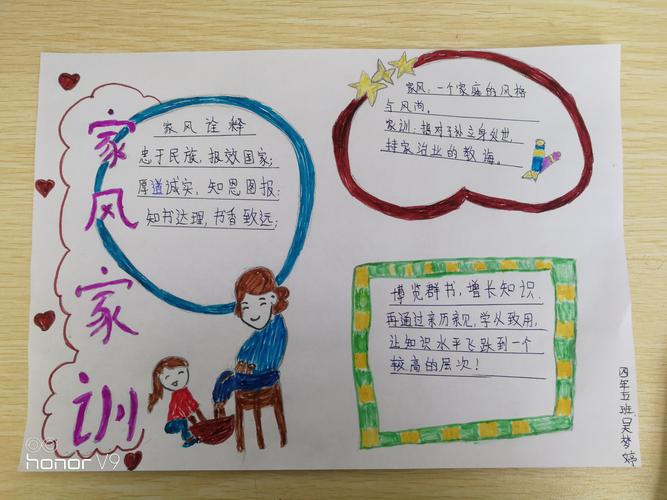 家风家训
家风诠释
忠于民族，报效国家；
厚道诚实，知恩图报；
知书达理，书香致远；
家风：一个家庭的风格
与风尚。
家训：指对子孙立身处世，
持家治业的教诲。
博览群书，增长知识．
再通过亲历亲见，学以致用，
让知识水平飞跃到一个
较高的层次！
四年五班吴梦婷
honor V9